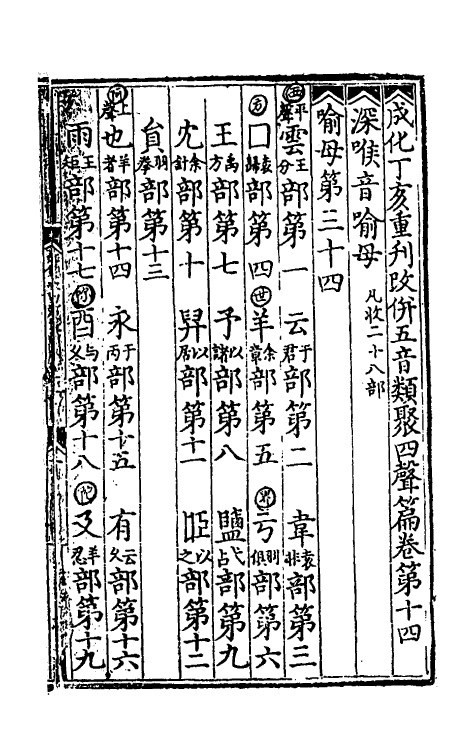 成化丁亥重刋改併五音類聚四聲篇卷第十四
深喉音喻母 凡收二十八部
喻母第三十四
平聲 雲王分部第一 云于君部第二 韋袁非部第三
囗部第四 羊余章部第五 亐羽俱部第六
王禹方部第七 予以諸部第八 鹽弋占部第九
冘余針部第十 舁以居部第十一 𦣞以之部第十二
員羽拳部第十三
上聲 也羊者部第十四 永于丙部第十五 有云久部第十六
雨王矩部第十七 酉与久部第十八 廴羊忍部第十九